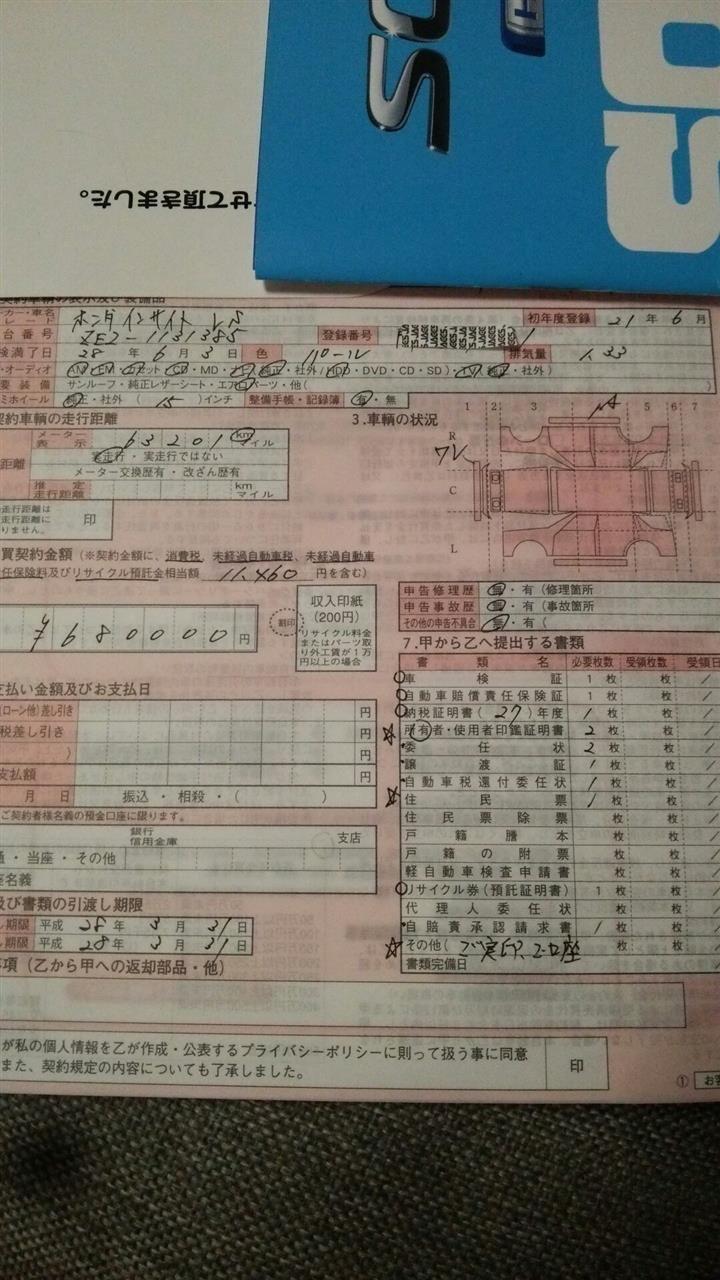 OS
H
OS
せて頂きました。
契約車輌の表示及び装備品
カー・車名
レード
ホンダ インサイト LS
初年度登録 21 年 6 月
台番号 ZE2-1131385
登録番号
検満了日 28 年 6 月 3 日 色
排気量 1.33
・オーディオ AM・FM・カセット・CD・MD・ナビ(純正・社外/HDD・DVD・CD・SD)・TV(純正・社外)
要装備 サンルーフ・純正レザーシート・エアロパーツ・他( )
ミホイール 純正・社外 ( 15 )インチ 整備手帳・記録簿 有・無
契約車輌の走行距離
距離
メーター表示 63201 km マイル
実走行・実走行ではない
メーター交換歴有・改ざん歴有
推定走行距離 km マイル
走行距離は
走行距離に
りません。
印
3.車輌の状況
1 2 3 5 6 7
R
C
L
買契約金額 (※契約金額に、消費税、未経過自動車税、未経過自動車
任保険料及びリサイクル預託金相当額 11.460 円を含む)
¥680000 円
割印
収入印紙
(200円)
リサイクル料金
またはパーツ取
り外工賃が1万
円以上の場合
申告修理歴 無・有(修理箇所
申告事故歴 無・有(事故箇所
その他の申告不具合 無・有(
7.甲から乙へ提出する書類
書類名 必要枚数 受領枚数 受領日
車検証 1 枚 枚 /
自動車賠償責任保険証 1 枚 枚 /
納税証明書(27)年度 1 枚 枚 /
所有者・使用者印鑑証明書 2 枚 枚 /
委任状 2 枚 枚 /
譲渡証 1 枚 枚 /
自動車税還付委任状 1 枚 枚 /
住民票 1 枚 枚 /
住民票除票 枚 枚 /
戸籍謄本 枚 枚 /
戸籍の附票 枚 枚 /
軽自動車検査申請書 枚 枚 /
リサイクル券(預託証明書) 1 枚 枚 /
代理人委任状 枚 枚 /
自賠責承認請求書 1 枚 枚 /
その他( ご実印、口座 枚 枚 /
書類完備日
支払い金額及びお支払日
(ローン他)差し引き 円
税差し引き 円
) 円
支払額 円
月 日 振込・相殺・( )
ご契約者様名義の預金口座に限ります。
銀行
信用金庫
支店
通・当座・その他
座名義
及び書類の引渡し期限
し期限 平成 28 年 3 月 31 日
し期限 平成 28 年 3 月 31 日
事項(乙から甲への返却部品・他)
が私の個人情報を乙が作成・公表するプライバシーポリシーに則って扱う事に同意
また、契約規定の内容についても了承しました。
印
① お客